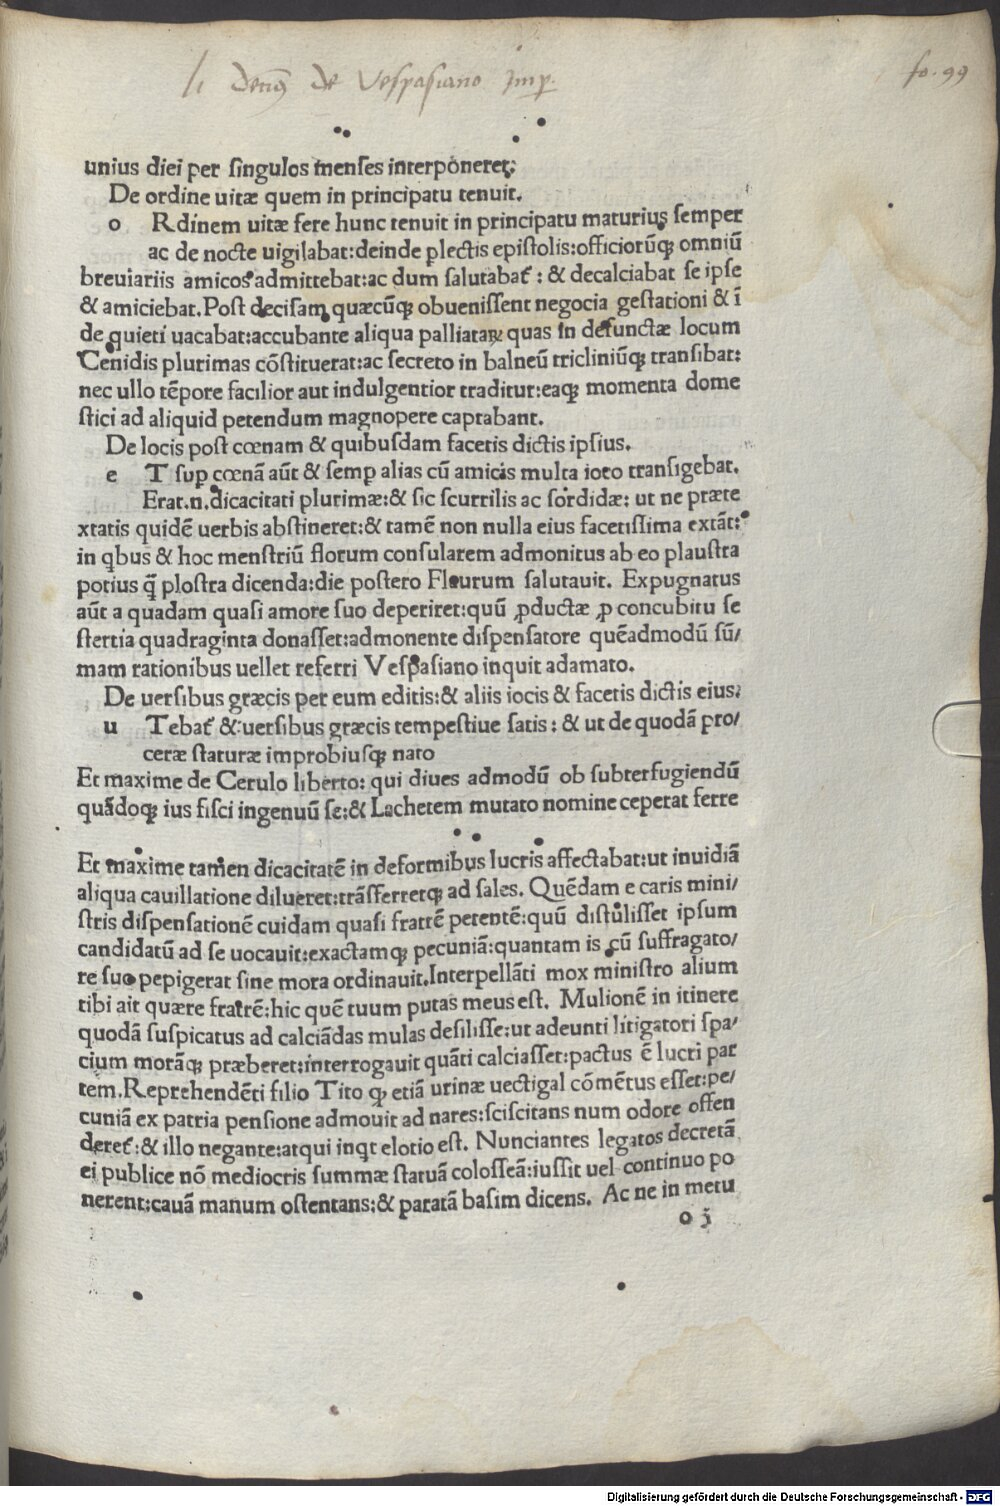 li decimus de Vespasiano Imp.
fo. 99
unius diei per singulos menses interponeret:
De ordine uitæ quem in principatu tenuit.
o Rdinem uitæ fere hunc tenuit in principatu maturius semper
ac de nocte uigilabat:deinde plectis epistolis:officiorũꝗ omniũ
breuiariis amicos admittebat:ac dum salutabat̃: & decalciabat se ipse
& amiciebat.Post decisam quæcũꝗ obuenissent negocia gestationi & ĩ
de quieti uacabat:accubante aliqua palliataꝝ quas in defunctæ locum
Cenidis plurimas cõstituerat:ac secreto in balneũ tricliniũꝗ transibat:
nec ullo tẽpore facilior aut indulgentior traditur:eaꝗ momenta dome
stici ad aliquid petendum magnopere captabant.
De locis post cœnam & quibusdam facetis dictis ipsius.
e T suꝑ cœnã aũt & semꝑ alias cũ amicis multa ioco transigebat.
Erat.n.dicacitati plurimæ:& sic scurrilis ac sordidæ: ut ne præte
xtatis quidẽ uerbis abstineret:& tamẽ non nulla eius facetissima extãt:
in qbus & hoc menstriũ florum consularem admonitus ab eo plaustra
potius q̃ plostra dicenda:die postero Fleurum salutauit. Expugnatus
aũt a quadam quasi amore suo deperiret:quũ ꝓductæ ꝓ concubitu se
stertia quadraginta donasset:admonente dispensatore quẽadmodũ sũ/
mam rationibus uellet referri Vespasiano inquit adamato.
De uersibus græcis per eum editis:& aliis iocis & facetis dictis eius.
u Tebat̃ & uersibus græcis tempestiue satis: & ut de quodã pro/
ceræ staturæ improbiusꝗ nato
Et maxime de Cerulo liberto: qui diues admodũ ob subterfugiendũ
quãdoꝗ ius fisci ingenuũ se:& Lachetem mutato nomine ceperat ferre
Et maxime tamen dicacitatẽ in deformibus lucris affectabat:ut inuidiã
aliqua cauillatione dilueret:trãsferretꝗ ad sales. Quẽdam e caris mini/
stris dispensationẽ cuidam quasi fratrẽ petentẽ:quũ distulisset ipsum
candidatũ ad se uocauit:exactamꝗ pecuniã:quantam is cũ suffragato/
re suo pepigerat sine mora ordinauit.Interpellãti mox ministro alium
tibi ait quære fratrẽ:hic quẽ tuum putas meus est. Mulionẽ in itinere
quodã suspicatus ad calciãdas mulas desilisse:ut adeunti litigatori spa/
cium morãꝗ præberet:interrogauit quãti calciasset:pactus ẽ lucri par
tem.Reprehendẽti filio Tito ꝙ etiã urinæ uectigal cõmẽtus esset:pe/
cuniã ex patria pensione admouit ad nares:sciscitans num odore offen
deret̃:& illo negante:atqui inqt elotio est. Nunciantes legatos decretã
ei publice nõ mediocris summæ statuã colosseã:iussit uel continuo po
nerent:cauã manum ostentans:& paratã basim dicens. Ac ne in metu
o 3
Digitalisierung gefördert durch die Deutsche Forschungsgemeinschaft - DFG